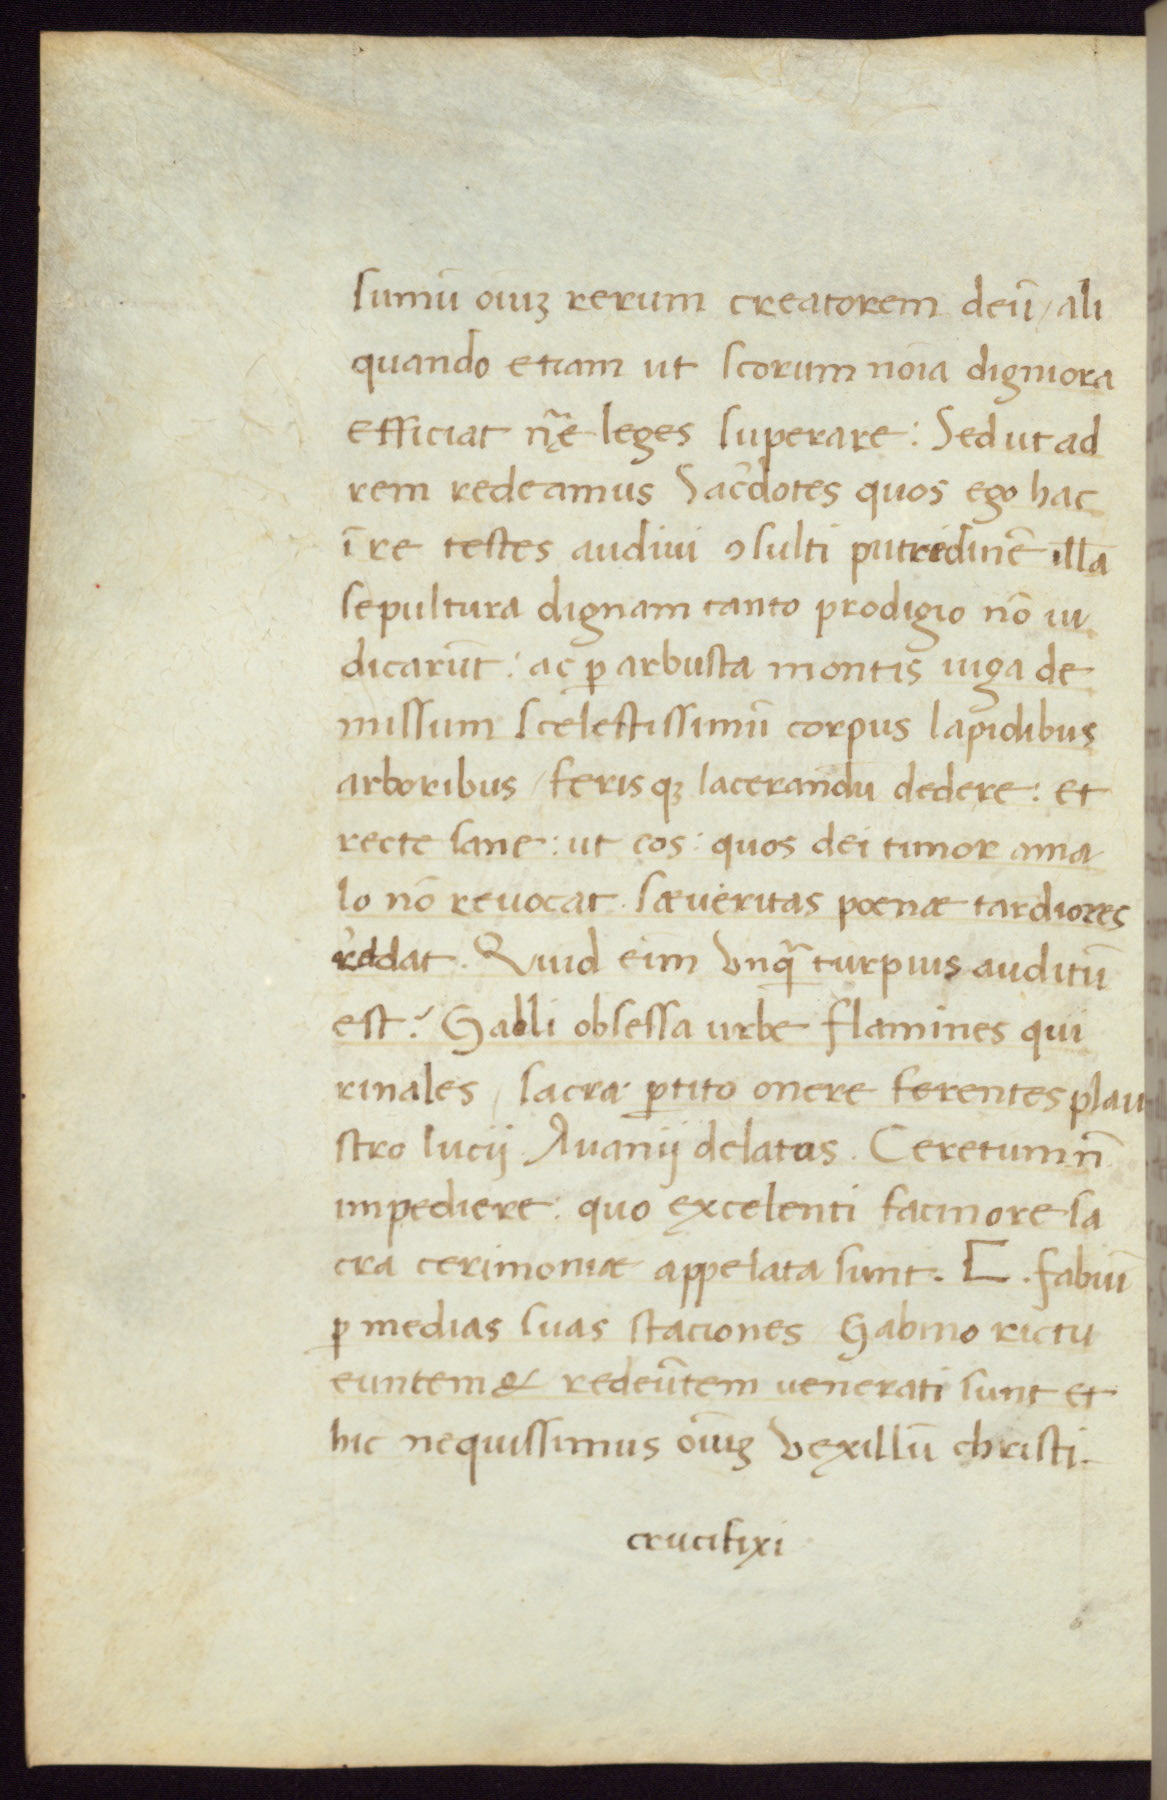 sumū oiuꝫ rerum creatorem deū / ali
quando etiam ut scorum noīa digniora
efficiat nr̃e leges superare : Sed ut ad
rem redeamus Sac̄dotes quos ego hac
ī re testes audiui ꝯsulti putridinē illā
sepultura dignam tanto prodigio nō iu
dicarūt : ac ꝑ arbusta montis iuga de
missum scelestissimū corpus lapidibus
arboribus / ferisqꝫ lacerandū dedere : et
recte sane : ut eos : quos dei timor a ma
lo nō reuocat . sæueritas pœnæ tardiores
reddat . Quid eim vnq̃ turpius auditū
est ? Galli obsessa urbe flamines qui
rinales / sacra ꝑtito onere ferentes plau
stro lucij Auanij delatas . Ceretum n̄
impediere : quo excelenti facinore sa
cra cerimoniæ appelata sunt . C . fabiū
ꝑ medias suas staciones Gabino rictu
euntem & redeūtem venerati sunt et
hic nequissimus oīuꝫ vexillū christi .
crucifixi